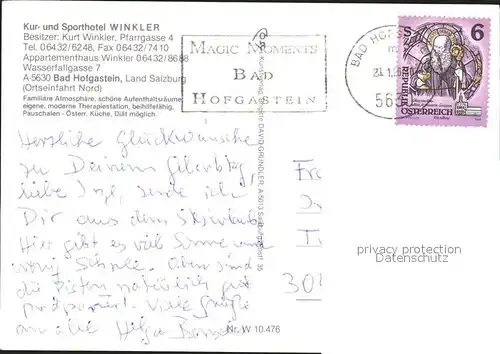 Kur- und Sporthotel WINKLER
Besitzer: Kurt Winkler, Pfarrgasse 4
Tel. 06432/6248, Fax 06432/7410
Appartementhaus Winkler 06432/8688
Wasserfallgasse 7
A-5630 Bad Hofgastein, Land Salzburg
(Ortseinfahrt Nord)
Familiäre Atmosphäre, schöne Aufenthaltsräume,
eigene, moderne Therapiestation, beihilfefähig.
Pauschalen - Österr. Küche, Diät möglich.
MAGIC MOMENTS
BAD
HOFGASTEIN
BAD HOFG
6
REPUBLIK
ÖSTERREICH
DAVID GRÜNDLER, A-5013 Salzburg
35
Herzliche Glückwünsche
zu Deinem
liebe Inge, sende ich
Dir aus dem Skiurlaub.
Hier gibt es viel Sonne und
wenig Schnee. Aber sind
die Pisten natürlich gut
präpariert. Viele Grüße
an alle Helga
Fr
301
privacy protection
Datenschutz
Nr. W 10.476